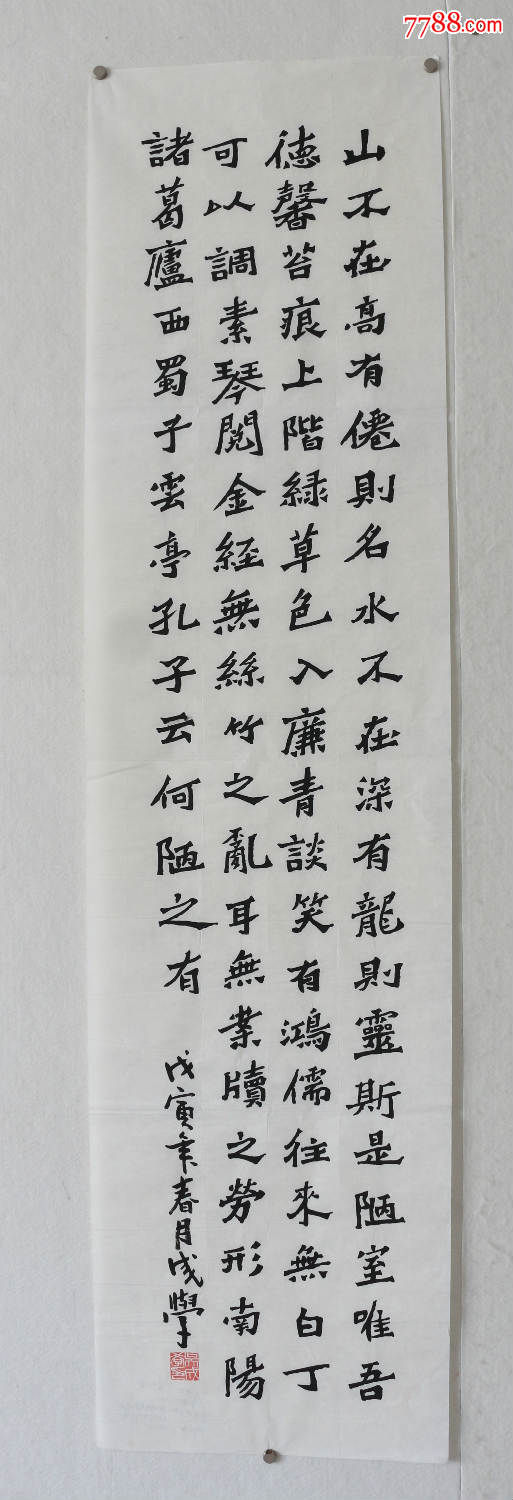 7788.com
山不在高有僊則名水不在深有龍則靈斯是陋室唯吾
徳馨苔痕上階緑草色入廉青談笑有鴻儒往來無白丁
可以調素琴閲金経無絲竹之亂耳無業牘之勞形南陽
諸葛廬西蜀子雲亭孔子云何陋之有
戊寅年春月成學